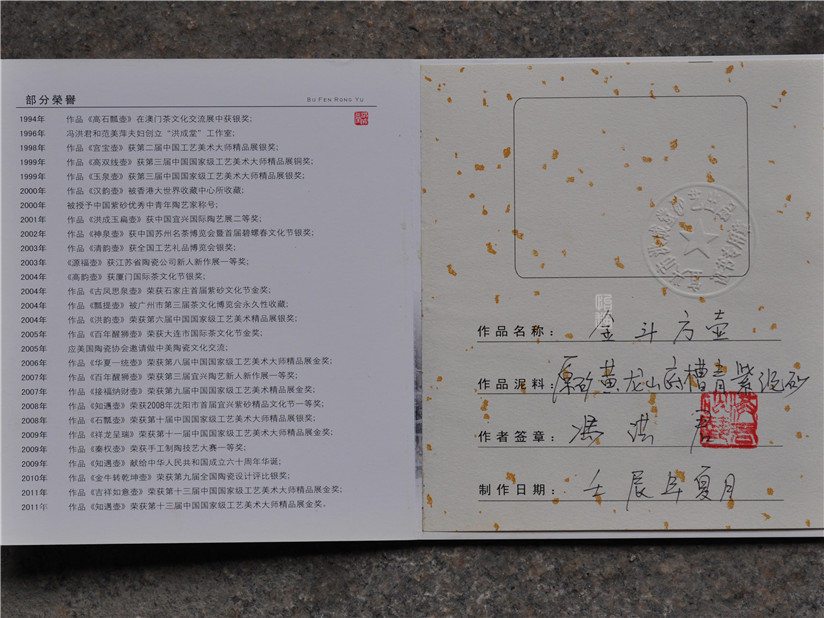 部分榮譽
BU FEN RONG YU
1994年 作品《高石瓢壶》在澳门茶文化交流展中获银奖;
1996年 冯洪君和范美萍夫妇创立“洪成堂”工作室;
1998年 作品《宫宝壶》获第二届中国工艺美术大师精品展银奖;
1999年 作品《高双线壶》获第三届中国国家级工艺美术大师精品展铜奖;
1999年 作品《玉泉壶》获第三届中国国家级工艺美术大师精品展银奖;
2000年 作品《汉韵壶》被香港大世界收藏中心所收藏;
2000年 被授予中国紫砂优秀中青年陶艺家称号;
2001年 作品《洪成玉扁壶》获中国宜兴国际陶艺展二等奖;
2002年 作品《神泉壶》获中国苏州名茶博览会暨首届碧螺春文化节银奖;
2003年 作品《清韵壶》获全国工艺礼品博览会银奖;
2003年 《源福壶》获江苏省陶瓷公司新人新作展一等奖;
2004年 《高韵壶》获厦门国际茶文化节银奖;
2004年 作品《古凤思泉壶》荣获石家庄首届紫砂文化节金奖;
2004年 作品《瓢提壶》被广州市第三届茶文化博览会永久性收藏;
2004年 作品《洪韵壶》荣获第六届中国国家级工艺美术大师精品展银奖;
2005年 作品《百年醒狮壶》荣获大连市国际茶文化节金奖;
2005年 应美国陶瓷协会邀请做中美陶瓷文化交流;
2006年 作品《华夏一统壶》荣获第八届中国国家级工艺美术大师精品展金奖;
2007年 作品《百年醒狮壶》荣获第三届宜兴陶艺新人新作展一等奖;
2007年 作品《接福纳财壶》荣获第九届中国国家级工艺美术大师精品展金奖;
2008年 作品《知遇壶》荣获2008年沈阳市首届宜兴紫砂精品文化节一等奖;
2008年 作品《石瓢壶》荣获第十届中国国家级工艺美术大师精品展银奖;
2009年 作品《祥龙呈瑞》荣获第十一届中国国家级工艺美术大师精品展金奖;
2009年 作品《秦权壶》荣获手工制陶技艺大赛一等奖;
2009年 作品《知遇壶》献给中华人民共和国成立六十周年华诞;
2010年 作品《金牛转乾坤壶》荣获第九届全国陶瓷设计评比银奖;
2011年 作品《吉祥如意壶》荣获第十三届中国国家级工艺美术大师精品展金奖;
2011年 作品《知遇壶》荣获第十三届中国国家级工艺美术大师精品展金奖.
作品名称: 金斗方壶
作品泥料: 原矿黄龙山底槽青紫泥砂
作者签章: 冯洪君
制作日期: 壬辰年夏月